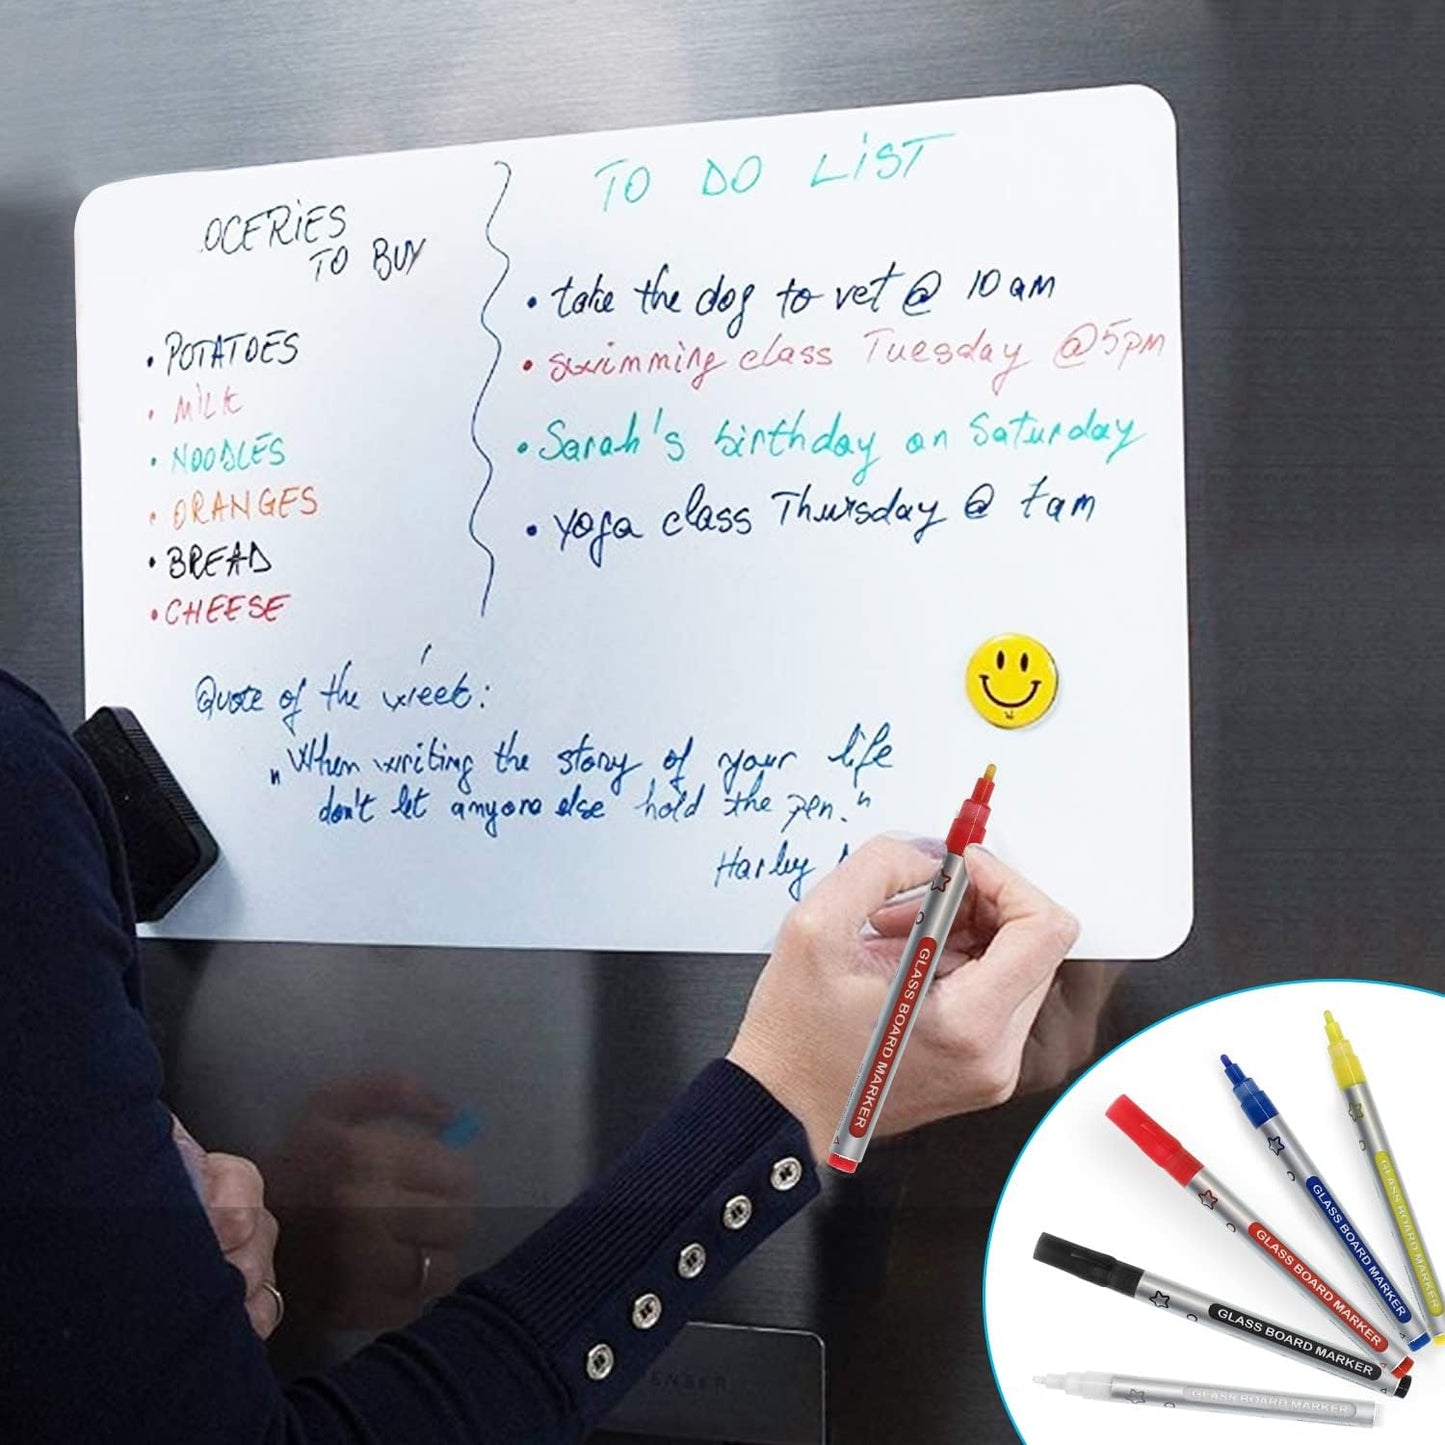 OCERiES
TO BUY
• POTATOES
• MiLK
• NOODLES
• ORANGES
• BREAD
• CHEESE
TO DO LiST
• take the dog to vet @ 10 am
• swimming class Tuesday @ 5pm
• Sarah's birthday on Saturday
• yoga class Thursday @ 7am
Quote of the week:
„When writing the story of your life
don't let anyone else hold the pen."
Harley
GLASS BOARD MARKER
GLASS BOARD MARKER
GLASS BOARD MARKER
GLASS BOARD MARKER
GLASS BOARD MARKER
GLASS BOARD MARKER